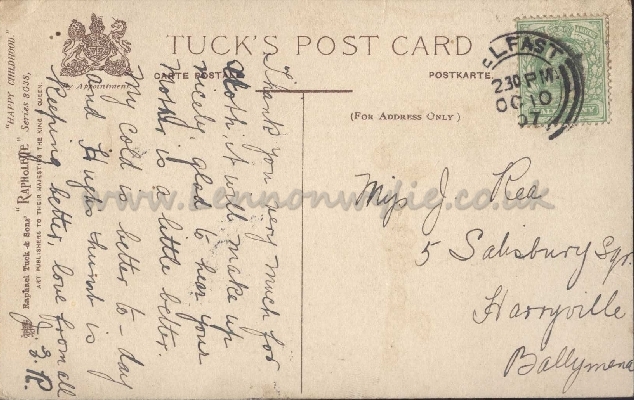 TUCK'S POST CARD
By Appointment
CARTE POSTALE
POSTKARTE
(FOR ADDRESS ONLY)
BELFAST
2.30 PM
OC 10
07
"HAPPY CHILDHOOD."
Raphael Tuck & Sons' "RAPHOLETTE" Series 8038,
ART PUBLISHERS TO THEIR MAJESTIES THE KING & QUEEN.
Thank you very much for
cloth it will make up
nicely, glad to hear your
Mother is a little better.
My cold is better to-day
and Hughs is
keeping better, love from all
R.
Miss J. Rea
5 Salisbury Sqr.
Harryville
Ballymena
www.Lennonwylie.co.uk